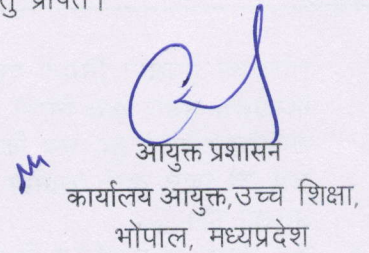 प्रेषित।
आयुक्त प्रशासन
कार्यालय आयुक्त,उच्च शिक्षा,
भोपाल, मध्यप्रदेश